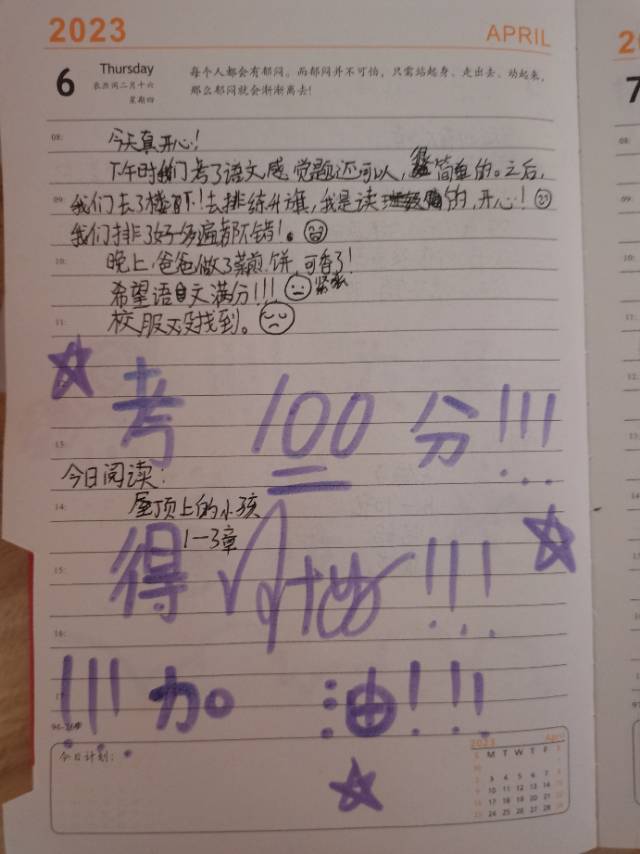 2023
APRIL
6
Thursday
农历闰二月十六
星期四
每个人都会有郁闷。而郁闷并不可怕，只需站起身、走出去、动起来，
那么郁闷就会渐渐离去!
08:
今天真开心!
下午时我们考了语文感觉题还可以，简单的。之后，
09:
我们去了楼下!去排练升旗，我是读的,开心!
我们排了好多遍都不错!。
10:
晚上,爸爸做了煎饼,可香了!
希望语文满分!!! 紧张
11:
校服又没找到。
考 100 分!!!
13:
今日阅读:
14:
屋顶上的小孩
1—3章
得 !!!
15:
16:
!!! 加油!!!
17:
今日计划:
2023 April
S M T W T F S
3 4 5 6 7 8
9 10 11 12 13 14 15
16 17 18 19 20 21 22
23 24 25 26 27 28 29